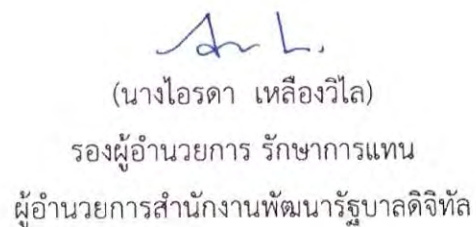 (นางไอรดา เหลืองวิไล)
รองผู้อำนวยการ รักษาการแทน
ผู้อำนวยการสำนักงานพัฒนารัฐบาลดิจิทัล